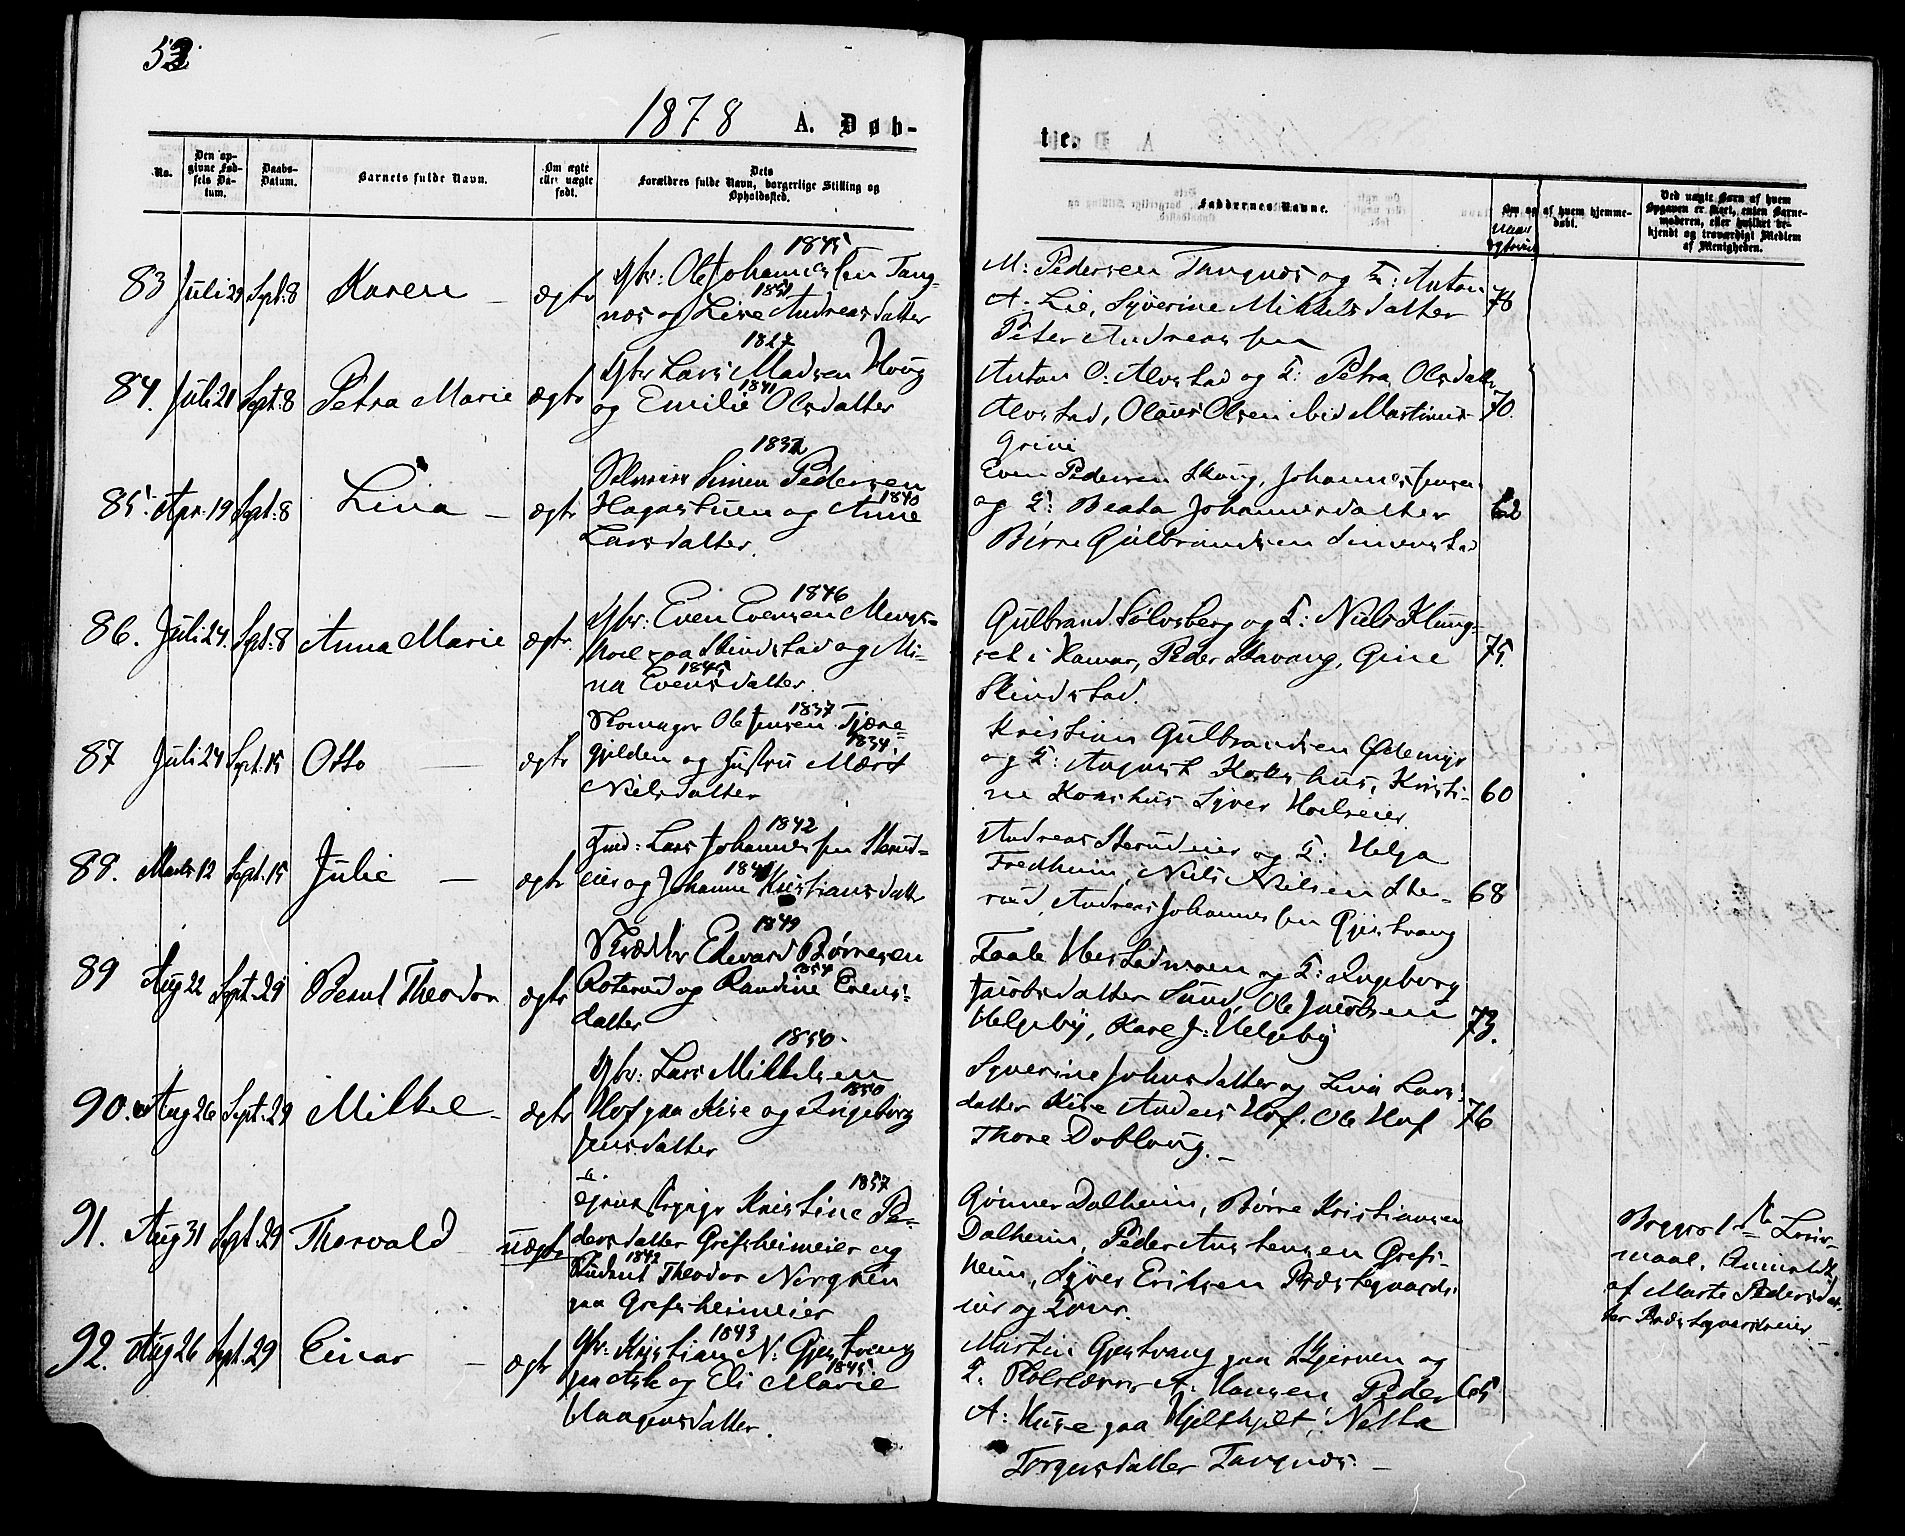 53
1878 A. Døb-
te.
No.
Den op-
givne Fød-
sels Da-
tum.
Daabs-
Datum.
Barnets fulde Navn.
Om ægte
eller uægte
født.
Dets
Forældres fulde Navn, borgerlige Stilling og
Opholdssted.
Faddernes Navne.
Om og af hvem hjemme-
døbt.
naar
Ved uægte Børn af hvem
Opgaven er skeet, enten Barne-
moderen, eller hvilket be-
kjendt og troværdigt Medlem
af Menigheden.
83 Juli 29 Sept: 8 Karen – ægte
1845
Gbr: Ole Johannessen Tang-
1851
næs og Lise Andreasdatter
M: Pedersen Tangnæs og F: Anton
A. Lie, Syverine Mikkelsdatter
Peter Andreassen
78
84. Juli 21 Sept: 8 Petra Marie ægte
1827
Gbr Lars Madsen Houg
1841
og Emilie Olsdatter
Anton O: Alvstad og F: Petra Olsdatt
Alvstad, Olaus Olsen Martinus
Grini
70.
85. Apr. 19 Sept: 8 Lina – ægte
Simen Pedersen
1840
Hagastuen og Anne
Larsdatter.
Even Pedersen Skoug, Johannes Jensen
og F: Beata Johannesdatter
Børre Gulbrandsen Simenstad
62
86. Juli 24. Sept: 8 Anna Marie ægte
1846
Gbr: Even Evensen
paa Skindstad og Mi-
1845
na Evensdatter.
Gulbrand Sølvsberg og F: Niels Klung-
set i Hamar, Peder Stavang, Gine
Skindstad.
75.
87 Juli 24 Sept. 15 Otto – ægte
1837
Skomager Ole Jensen Tjærne-
1834
gjilden og Hustru Marit
Nielsdatter
Kristian Gulbrandsen Ødemyr
og F: August Korshus, Kristi-
ne Korshus Syver Hoelseier.
60
88. Marts 12 Sept. 15 Julie – ægte
1842
Lars Johannessen Sterud-
eie og Johanne Kristiansdatter
Andreas Sterudeier og F: Helga
Fredheim, Niels Nielsen Ste-
rud, Andreas Johannessen Gjestvang
68
89 Aug 22 Sept. 29 Bernt Theodor ægte
1849
Skrædder Edvard Børresen
1854
Roterud og Randine Evens-
datter
og F: Ingeborg
Jacobsdatter Sund, Ole Jacobsen
Helgeby, Kare J: Helgeby
73.
90. Aug 26 Sept. 29 Mikkel – ægte
1850.
Gbr: Lars Mikkelsen
1850
Hof paa Kise og Ingeborg
Jensdatter
Syverine Johnsdatter og Lina Lars-
datter Kise Anders Hof. Ole Hof
Thore Dobloug. –
76
91. Aug 31 Sept. 29 Thorvald uægte
1857
Kristine Pe-
dersdatter Grefsheimeier og
1842
Student Theodor Norgren
paa Grefsheimeier
Gunner Dalheim, Børre Kristiansen
Dalheim, Peder Austensen Grefs-
heim, Syver Eriksen Præstegaards-
eier og Kone.
Begges 1ste Leier-
maal. Anmeldt
af Marte Pedersdat-
ter Præstegaardseier.
92. Aug 26 Sept. 29 Einar – ægte
1843
Gbr: Kristian N: Gjestvang
1845
paa Ask og Eli Marie
Haagensdatter.
Martin Gjestvang paa Skjerven og
F. A: Hansen Peder
A: Huse paa Hjelthjelt, Netta
Torgersdatter Tangnæs. –
65